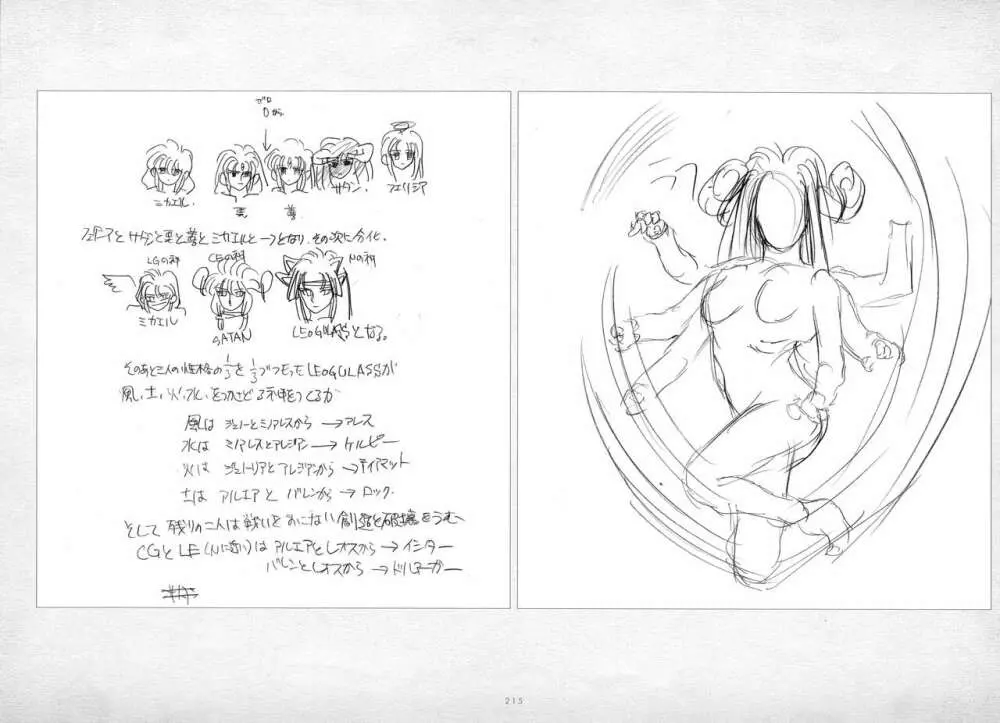 ゼロ
0から
ミカエル.
悪
善
サタン.
フェリシア
フェリシアとサタンと悪と善とミカエルと一つとなり.その次に分化.
LGの神
CEの神
Nの神
ミカエル
SATAN
LEOGULASSとなる。
そのあと三人の性格の1/3を1/3づつもってLEOGULASSが
風,土,火,水,をつかさどる神をつくるが
風は ジェノーとミノアレスから→アレス
水は ミノアレスとアレジアン→ケルピー
火は とアレジアンから→ティアマット
土は アルエアと バレンから→ロック.
そして 残りの二人は戦いをおこない創造と破壊をうむ
CGとLE(Nに近い)は アルエアとレオスから→イシター
バレンとレオスから→
215